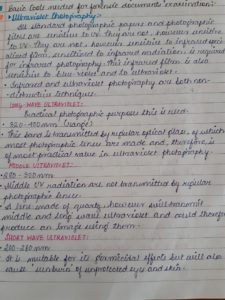 Basic Tools needed for forensic documents examination:
• Ultraviolet Photography:
All standard photographic papers and photographic
films are sensitive to UV. They are not, however sensitive
to UV. They are not, however sensitive to infrared
films sensitized to infrared radiation is required
for infrared photography. This infrared film is also
sensitive to blue-violet and to ultraviolet.
• Infrared and ultraviolet photography are both non-
destructive technique.
LONG-WAVE ULTRAVIOLET:
Practical photographic purposes this is used.
• 320-400 mm (range)
• This band is transmitted by regular optical glass of which
most photographic lens are made and, therefore, is
of most practical value in ultraviolet photography.
MIDDLE ULTRAVIOLET:
• 280-320mm
• Middle UV radiation are not transmitted by regular
photographic lenses.
• A lens made of quartz, however will transmit
middle and long wave ultraviolet and could therefore
produce an image using them.
SHORT WAVE ULTRAVIOLET:
• 200-280 mm
• It is suitable for its germicidal effects but will also
cause sunburn of unprotected eye and skin.